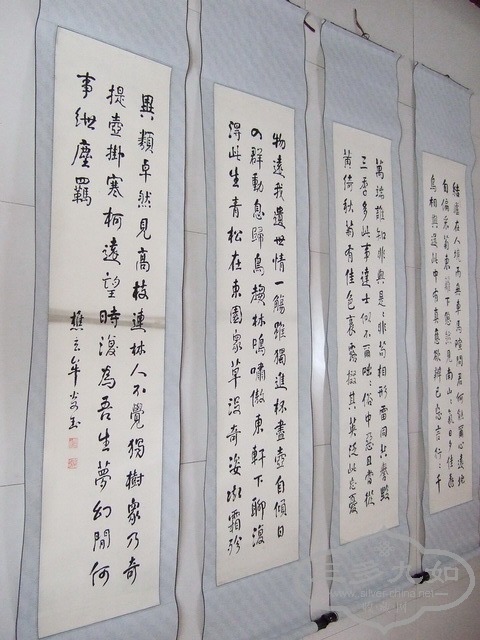 結廬在人境而無車馬喧問君何能爾心遠地
自偏采菊東籬下悠然見南山氣日夕佳飛
鳥相與還此中有真意欲辨已忘言行千
萬端誰知非與是非苟相形雷同共譽毀
三季多此事達士似不爾咄俗中惡且當從
黃綺秋菊有佳色裛露掇其英汎此忘憂
物遠我遺世情一觴雖獨進杯盡壺自傾日
入群動息歸鳥趨林鳴嘯傲東軒下聊復
得此生青松在東園眾草沒奇姿凝霜殄
異類卓然見高枝連林人不覺獨樹眾乃奇
提壺掛寒柯遠望時復為吾生夢幻間何
事紲塵羈
三多九如